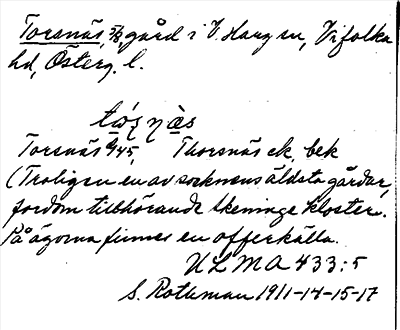 Torsnäs, 5/8, gård i V. Harg sn, Vifolka
hd, Österg. l.
tɷ́ʂn̠ä̀s
Torsnäs 6/45, Thorsnäs ek, bek
(Troligen en av socknens äldsta gårdar,
fordom tillhörande Skeninge kloster.
På ägorna finnes en offerkälla.
ULMA 433:5
S. Rothman 1911-14-15-17